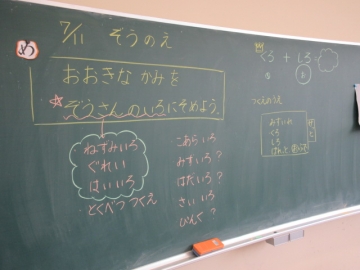 7/11 ぞうのえ
め
おおきな かみを
☆ぞうさんのいろにそめよう。
ねずみいろ
ぐれい
はいいろ
とくべつ つくえ
こあらいろ
みずいろ?
はだいろ?
さいいろ
ぴんく?
くろ + しろ =
つくえのうえ
みずいれ
くろ
しろ